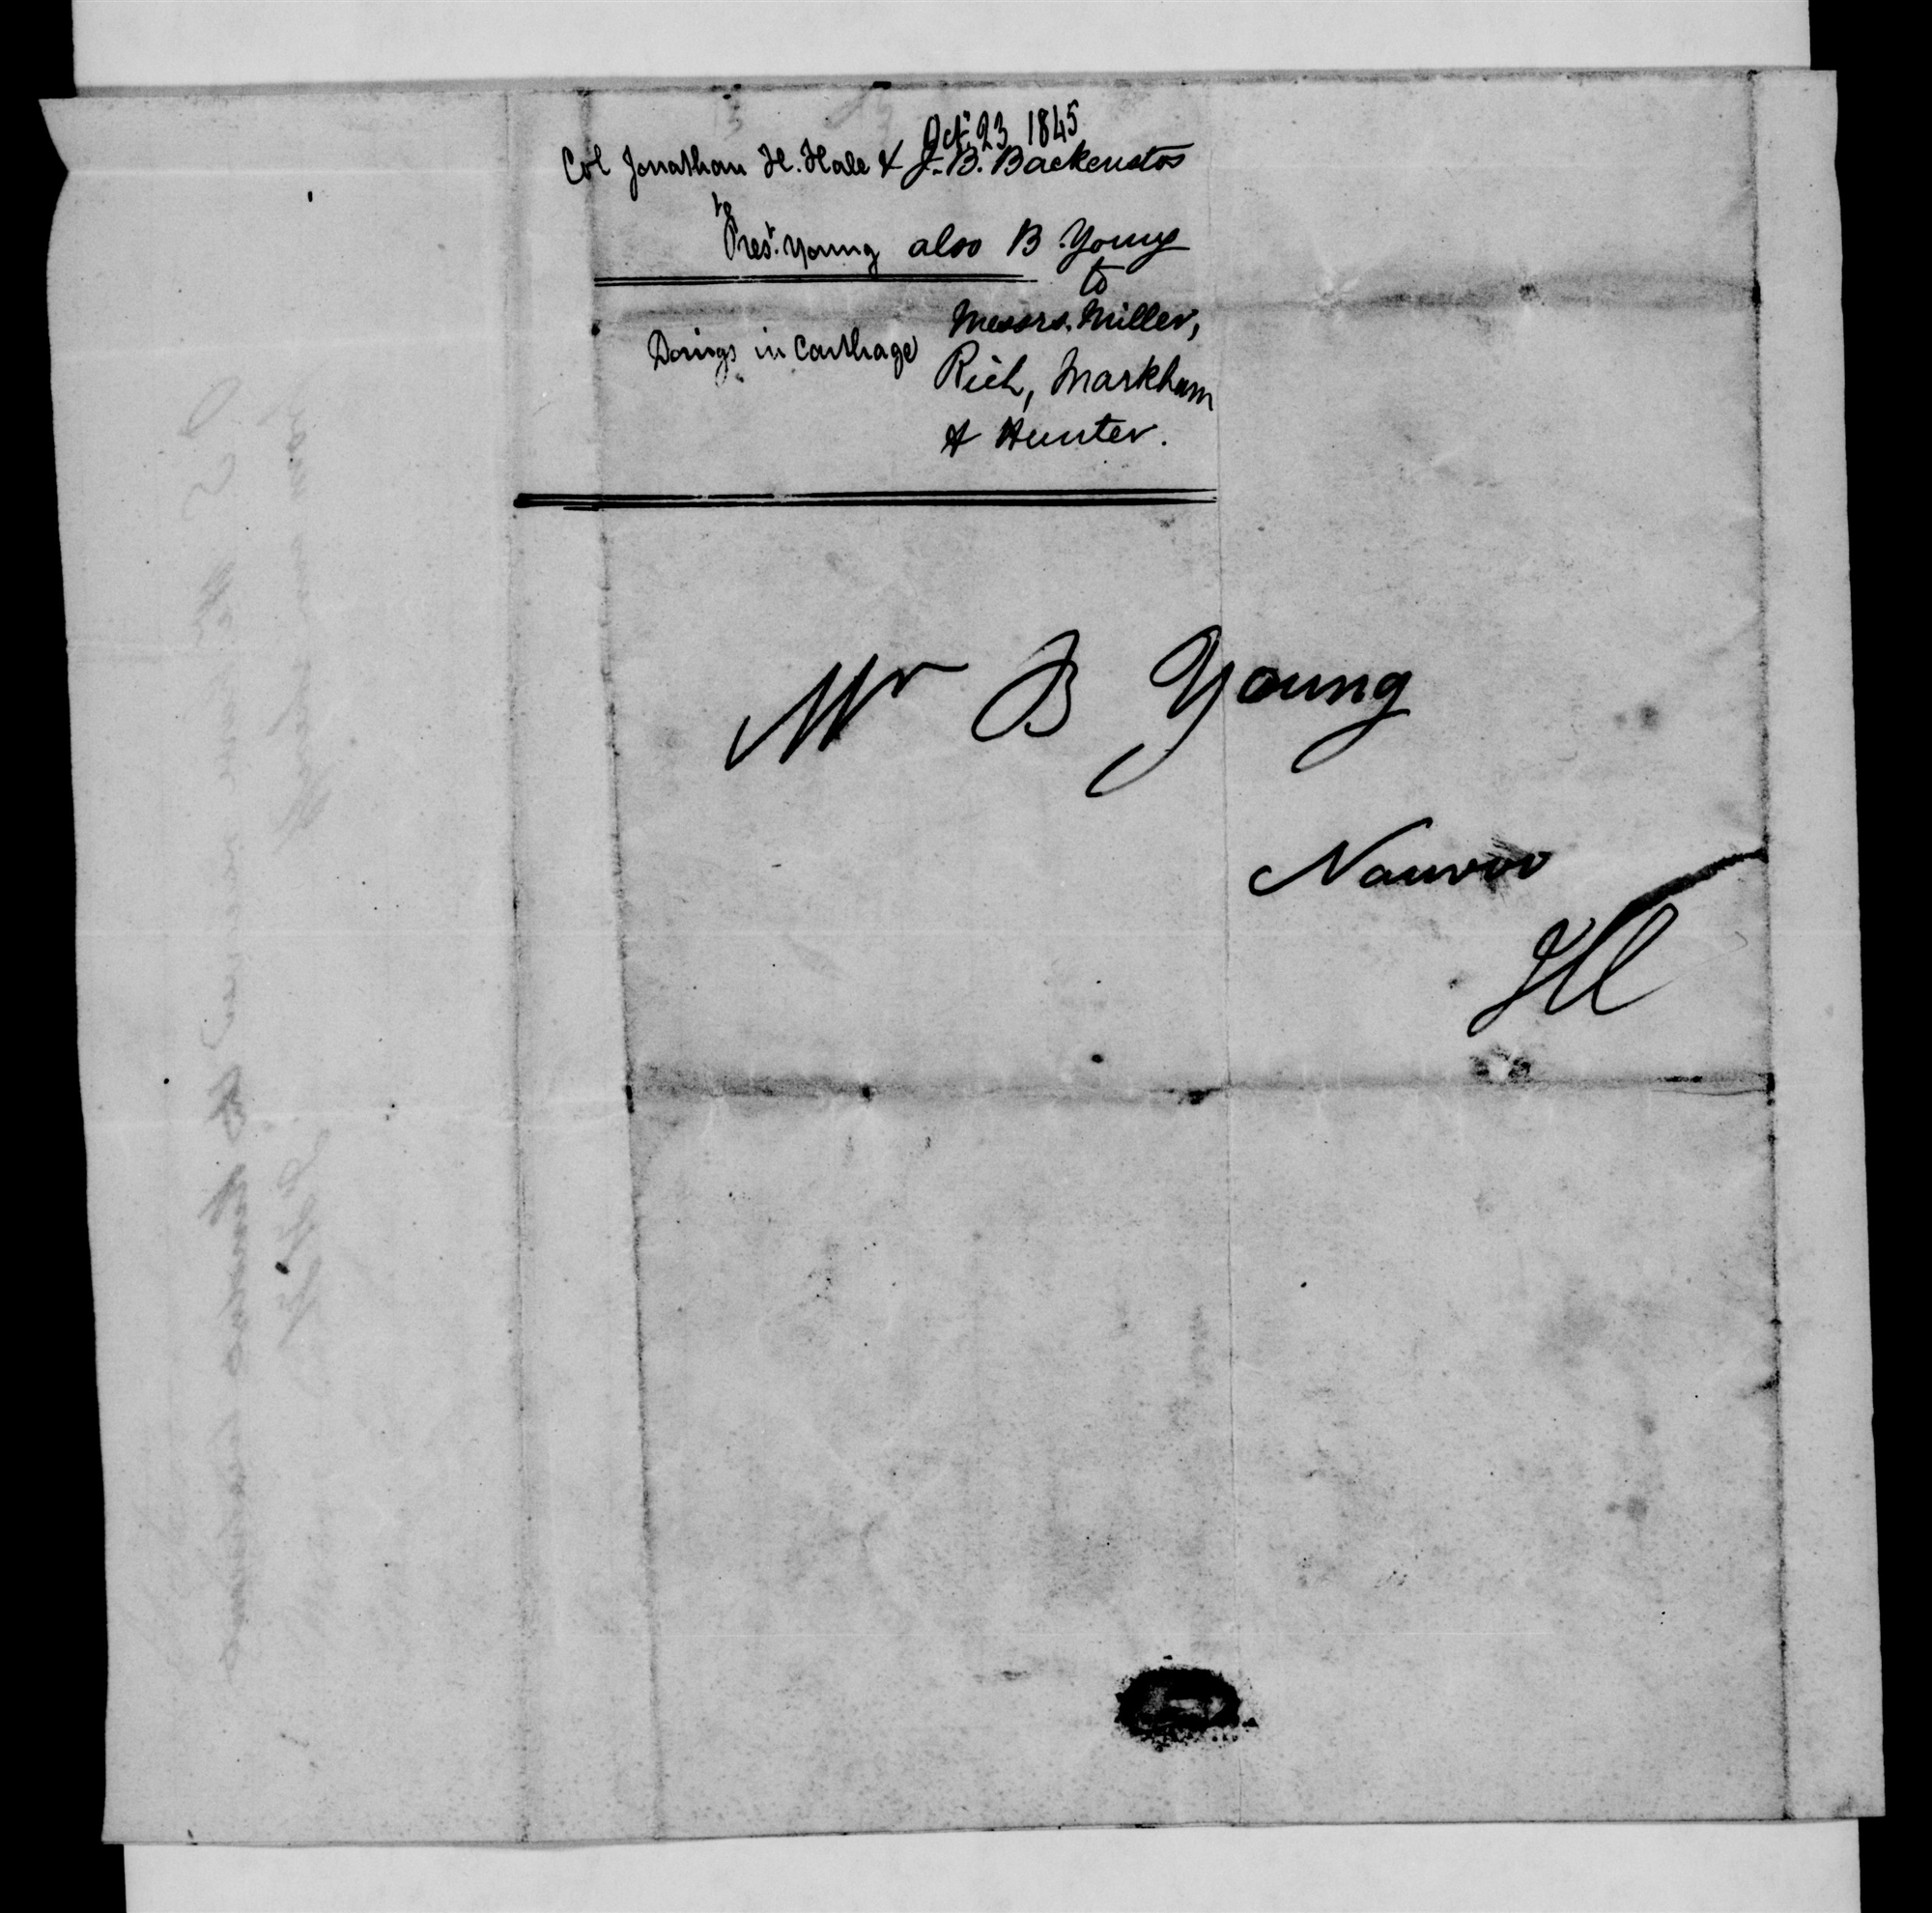 Oct. 23 1845
Col Jonathan H. Hale & J. B. Backenstos
to
Prest. Young also B. Young
to
Doings in Carthage Messrs. Miller,
Rich, Markham
& Hunter.
Mr B Young
Nauvoo
Ill